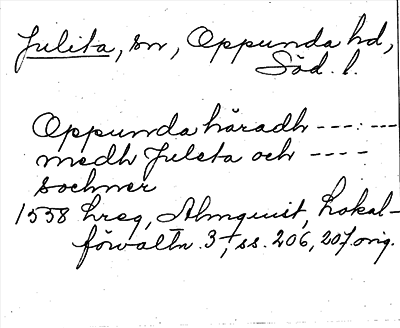 Julita, sn, Oppunda hd,
Söd. l.
Oppunda häradh ---:---
medh Juleta och ----
sochner
1558 hreg, Almquist, Lokal-
förvaltn. 3†, ss. 206, 207 orig.